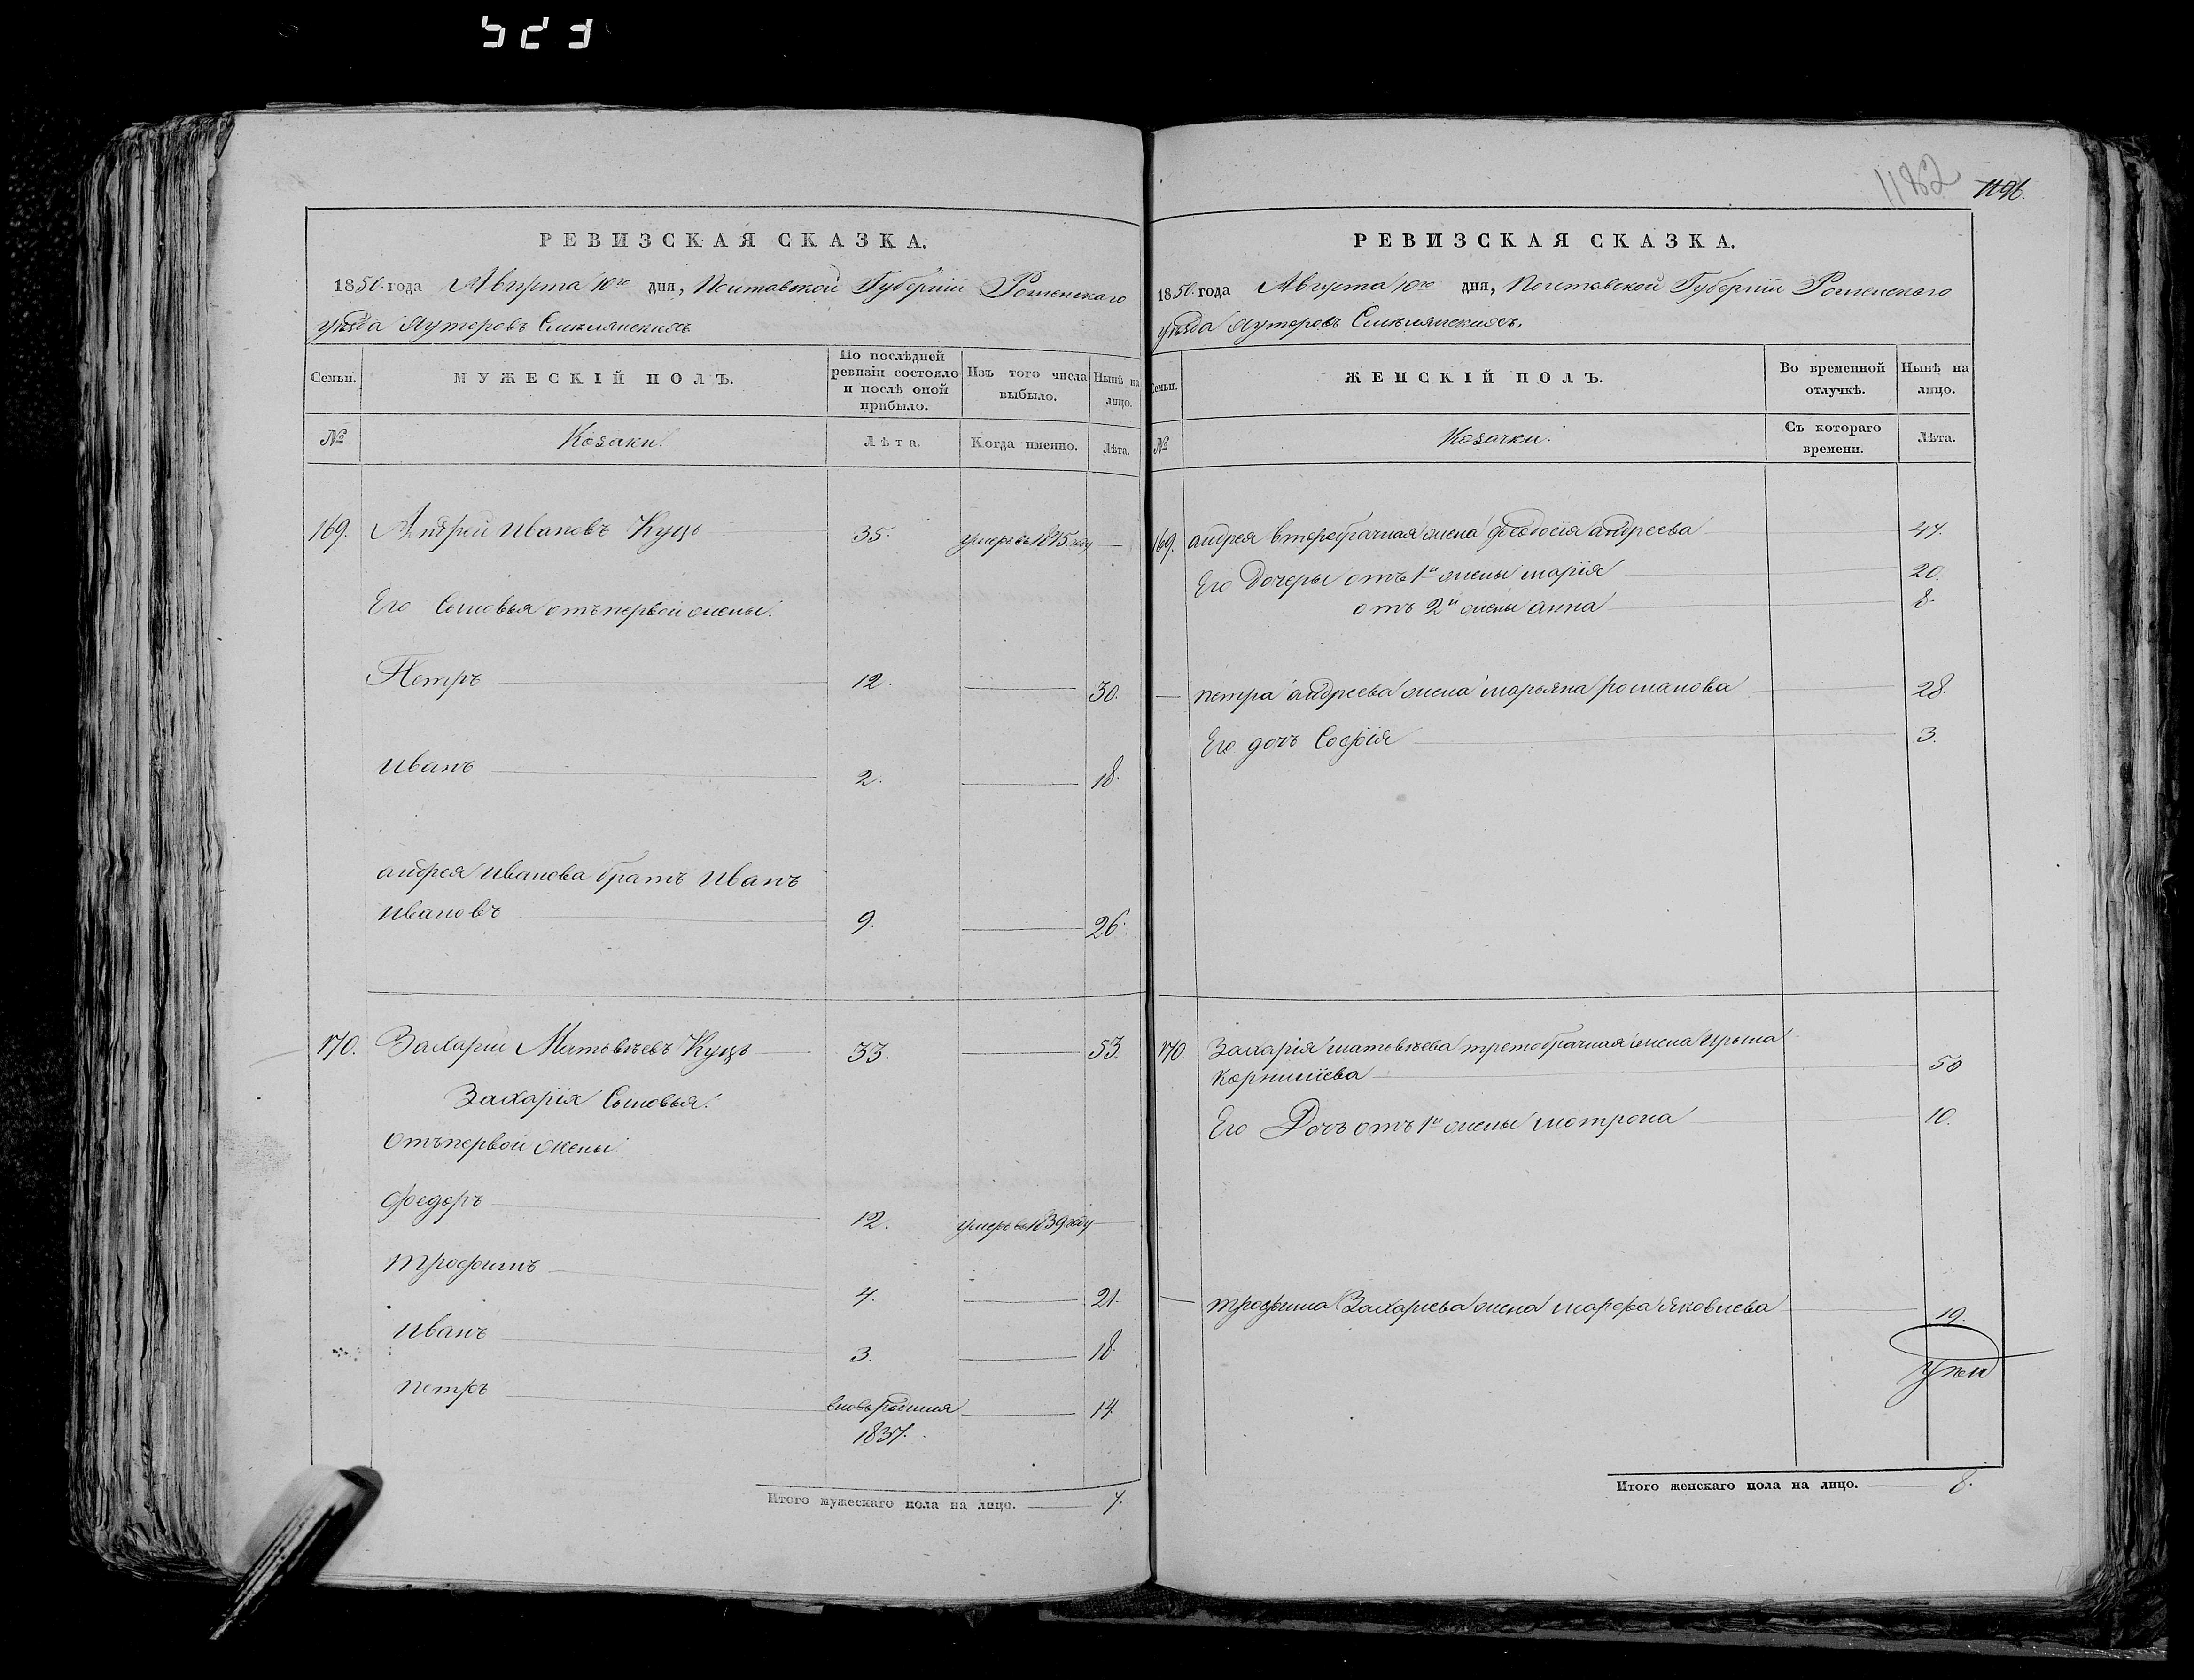 523
1182
1196.
РЕВИЗСКАЯ СКАЗКА.
1850. года Августа 10го дня, Полтавской Губерніи Роменскаго
уѣзда Хуторовъ Смѣлянскихъ
Семьи.
МУЖЕСКІЙ ПОЛЪ.
По послѣдней ревизіи состояло и послѣ оной прибыло.
Изъ того числа выбыло.
Нынѣ на лицо.
№
Козаки.
Лѣта.
Когда именно.
Лѣта.
169. Андрей Ивановъ Куцъ 35. умеръ въ 1845 году
Его Сыновья отъ первой жены.
Петръ 12. 30.
Иванъ 2. 18.
андрея Иванова братъ Иванъ
Ивановъ 9. 26.
170. Захарий Матвѣевъ Куцъ 33. 53.
Захарія Сыновья.
Отъ первой жены.
Федоръ 12. умеръ въ 1839 году
Трофимъ 4. 21.
Иванъ 3. 18.
Петръ вновь родился 14.
1837.
Итого мужескаго пола на лицо. 7.
РЕВИЗСКАЯ СКАЗКА.
1850. года Августа 10го дня, Полтавской Губерніи Роменскаго
уѣзда Хуторовъ Смѣлянскихъ.
Семьи.
ЖЕНСКІЙ ПОЛЪ.
Во временной отлучкѣ.
Нынѣ на лицо.
№
Козачки.
Съ котораго времени.
Лѣта.
169. андрея второбрачная жена феодосія андреева 47.
Его дочеры отъ 1й жены марія 20.
отъ 2й жены анна 8.
петра андреева жена марьяна романова 28.
Его дочь Софія 3.
170. Захарія матвѣева третобрачная жена
Корниліева 50
Его Дочь отъ 1й жены мотрона 10.
трофима Захариева жена марфа яковлева 19.
Итого женскаго пола на лицо. 8.